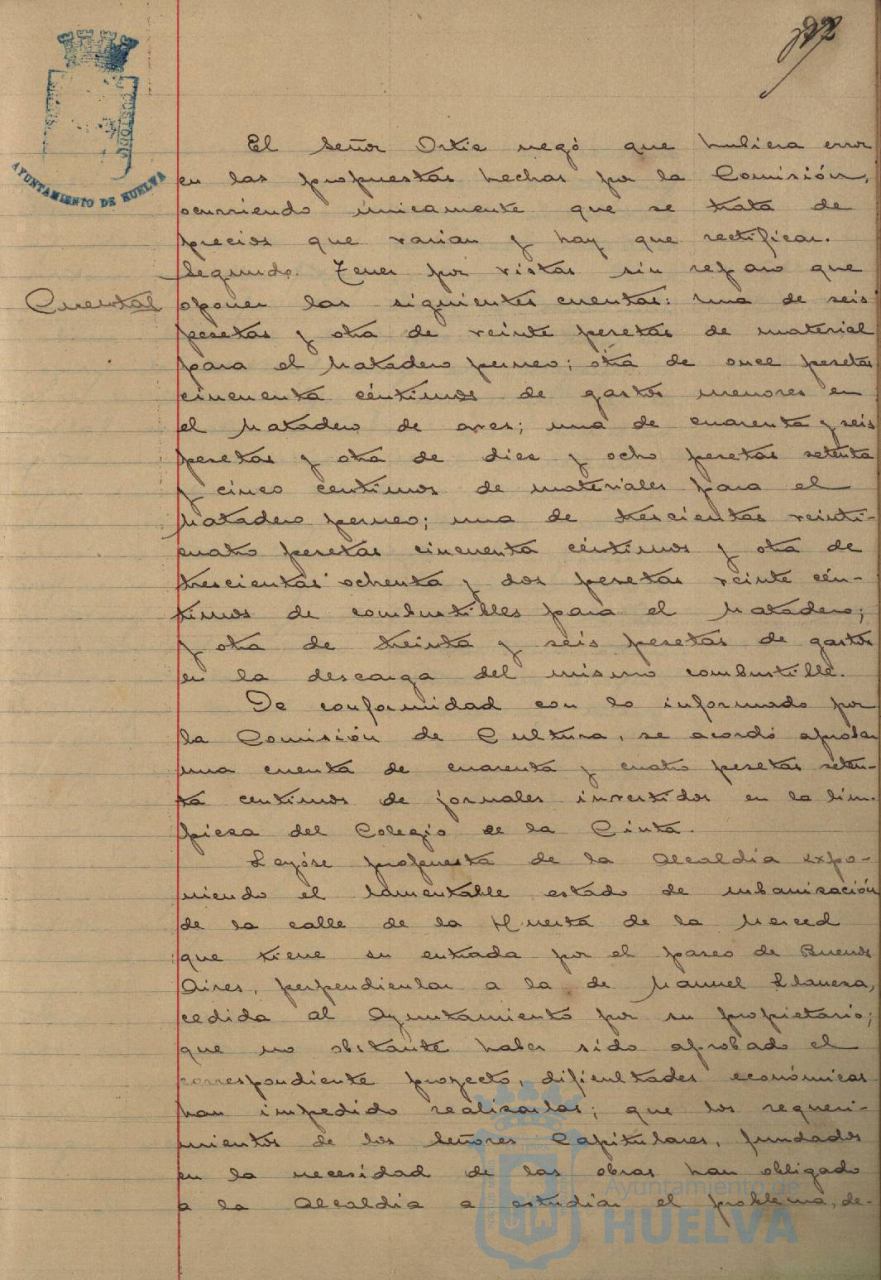 El Señor Ortiz negó que hubiera error
en las propuestas hechas por la Comisión,
ocurriendo únicamente que se trata de
precios que varian y hay que rectificar.
Segundo. Tener por vistas sin reparo que
Cuentas
oponer las siguientes cuentas: una de seis
pesetas y otra de veinte pesetas de material
para el Matadero perneo; otra de once pesetas
cincuenta céntimos de gastos menores en
el Matadero de aves; una de cuarenta y seis
pesetas y otra de diez y ocho pesetas setenta
y cinco centimos de materiales para el
Matadero perneo; una de trescientas veinti-
cuatro pesetas cincuenta céntimos y otra de
trescientas ochenta y dos pesetas veinte cén-
timos de combustibles para el Matadero;
y otra de treinta y seis pesetas de gastos
en la descarga del mismo combustible.
De conformidad con lo informado por
la Comisión de Cultura, se acordó aprobar
una cuenta de cuarenta y cuatro pesetas seten-
ta centimos de jornales invertidos en la lim-
pieza del Colegio de la Cinta.
Leyóse propuesta de la Alcaldía expo-
niendo el lamentable estado de urbanización
de la calle de la Huerta de la Merced
que tiene su entrada por el paseo de Buenos
Aires, perpendicular a la de Manuel Llaneza,
cedida al Ayuntamiento por su propietario;
que no obstante haber sido aprobado el
correspondiente proyecto, dificultades económicas
han impedido realizarlas; que los requeri-
mientos de los Señores Capitulares, fundados
en la necesidad de las obras han obligado
a la Alcaldía a estudiar el problema, de-
AYUNTAMIENTO DE HUELVA
Ayuntamiento de
HUELVA